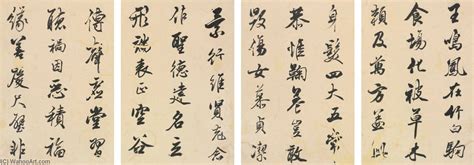 王鳴鳳在竹白駒
食場化被草木
賴及萬方蓋此
身髮四大五常
恭惟鞠養豈敢
毀傷女慕貞潔
景行維賢克念
作聖德建名立
形端表正空谷
傳聲虛堂習
聽禍因惡積福
緣善慶尺璧非
© WahooArt.com